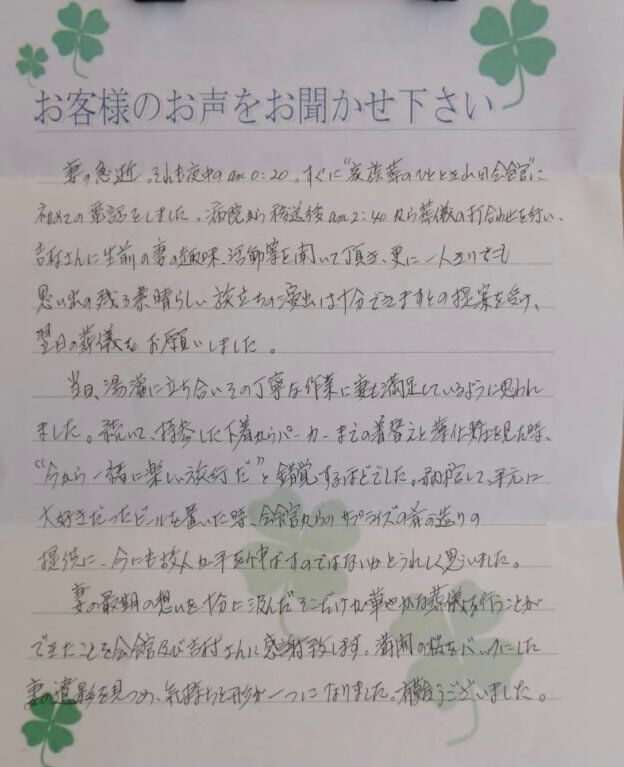 お客様のお声をお聞かせ下さい
妻の急逝。それも夜中のam0:20。すぐに“家族葬のひととき 会館”に
初めての電話をしました。病院から移送後am2:40から葬儀の打合わせを行い、
吉村さんに生前の妻の趣味、活動等を聞いて頂き、更に一人きりでも
思い出の残る素晴らしい旅立ちの演出は十分できますとの提案を受け、
翌日の葬儀をお願いしました。
当日、湯灌に立ち合いその丁寧な作業に妻も満足しているように思われ
ました。続いて、持参した下着からパーカーまでの着替えと薄化粧を見た時、
“今から一緒に楽しい旅行だ”と錯覚するほどでした。納棺して、手元に
大好きだったビールを置いた時、会館からのサプライズの舟造りの
提供に、今にも故人が手を伸ばすのではないかとうれしく思いました。
妻の最期の想いを十分に汲んだそこだけが華やかな葬儀を行うことが
できたことを会館及び吉村さんに感謝致します。満開の桜をバックにした
妻の遺影を見つめ、気持ちと形が一つになりました。有難うございました。